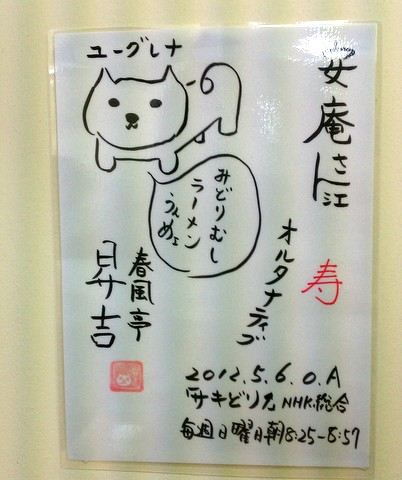 安庵さん江
寿
オルタナティブ
ユーグレナ
みどりむし
ラーメン
うんめぇ
春風亭
昇吉
2012.5.6.O.A
サキどり NHK総合
毎週日曜日朝8:25-8:57